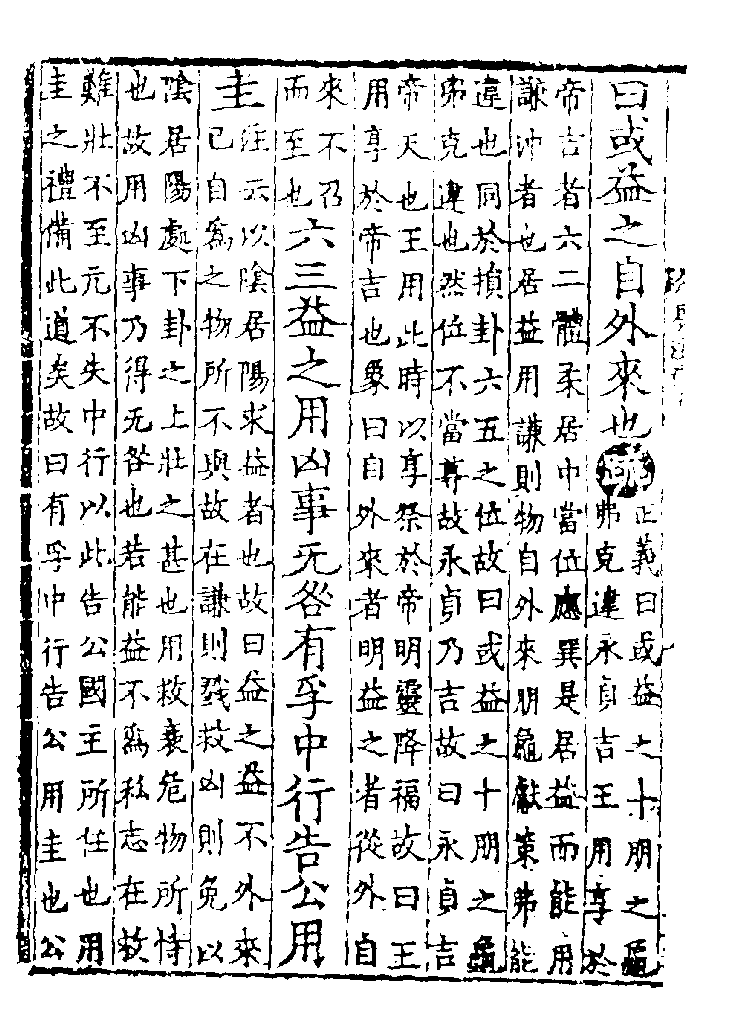 曰或益之自外來也疏正義曰或益之十朋之龜
弗克違永貞吉王用享於
帝吉者六二體柔居中當位應巽是居益而能用
謙沖者也居益用謙則物自外來朋龜獻策弗能
違也同於損卦六五之位故曰或益之十朋之龜
弗克違也然位不當尊故永貞乃吉故曰永貞吉
帝天也王用此時以享祭於帝明靈降福故曰王
用享於帝吉也象曰自外來者明益之者從外自
來不召
而至也六三益之用凶事无咎有孚中行告公用
圭注云以陰居陽求益者也故曰益之益不外來
已自爲之物所不與故在謙則戮救凶則免以
陰居陽處下卦之上壯之甚也用救衰危物所恃
也故用凶事乃得无咎也若能益不爲私志在救
難壯不至亢不失中行以此告公國主所任也用
圭之禮備此道矣故曰有孚中行告公用圭也公